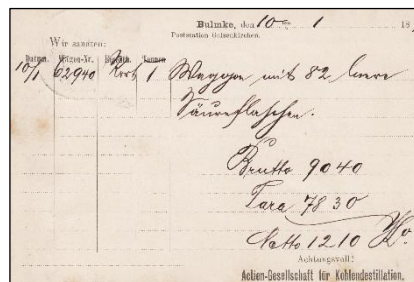 Bulmke, den 10 1 18
Poststation Gelsenkirchen.
Wir sandten:
Datum. Wagen-Nr. Tonnen
10/1 62940 1 Waggon mit 82 leere
Säureflaschen.
Brutto 9040
Tara 7830
Netto 1210 Ko
Achtungsvoll!
Actien-Gesellschaft für Kohlendestillation.